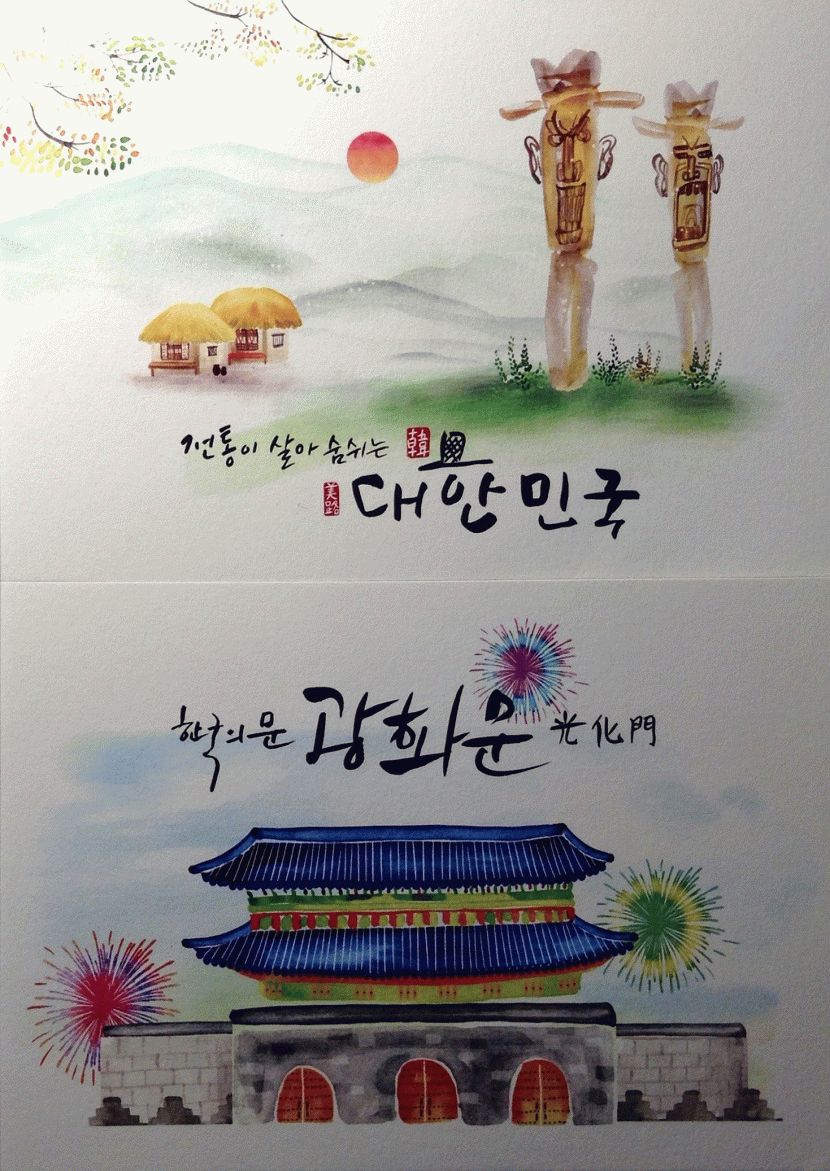 전통이 살아 숨쉬는 韓
대한민국
한국의 문 광화문 光化門